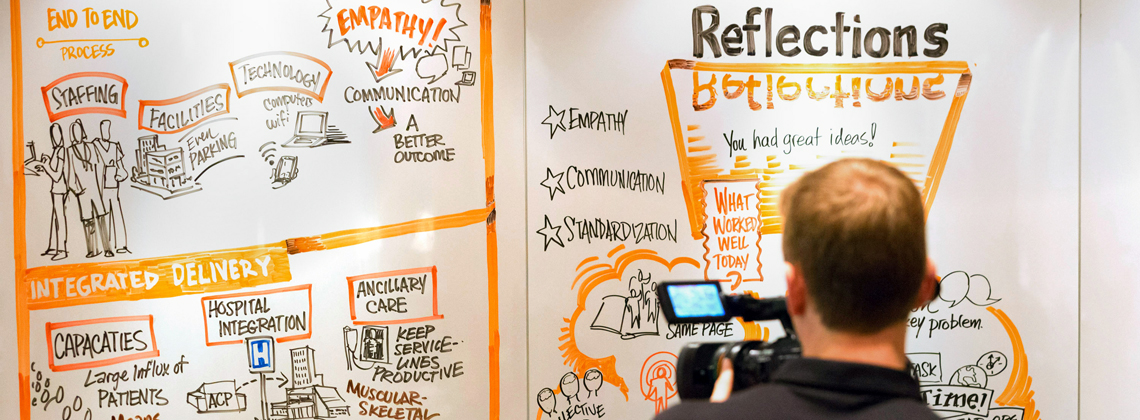 END TO END
PROCESS
STAFFING
FACILITIES
Even
PARKING
TECHNOLOGY
Computers
wifi
EMPATHY!
COMMUNICATION
A
BETTER
OUTCOME
INTEGRATED DELIVERY
CAPACATIES
Large Influx of
PATIENTS
Means
HOSPITAL
INTEGRATION
H
ACP
ANCILLARY
CARE
KEEP
SERVICE-
LINES
PRODUCTIVE
MUSCULAR-
SKELETAL
Reflections
Reflections
You had great ideas!
EMPATHY
COMMUNICATION
STANDARDIZATION
WHAT
WORKED
WELL
TODAY
?
SAME PAGE
problem.
Time!